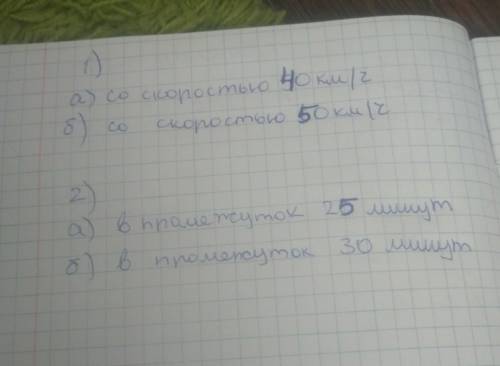 1)
а) со скоростью 40 км/ч
б) со скоростью 50 км/ч
2)
а) в промежуток 25 минут
б) в промежуток 30 минут